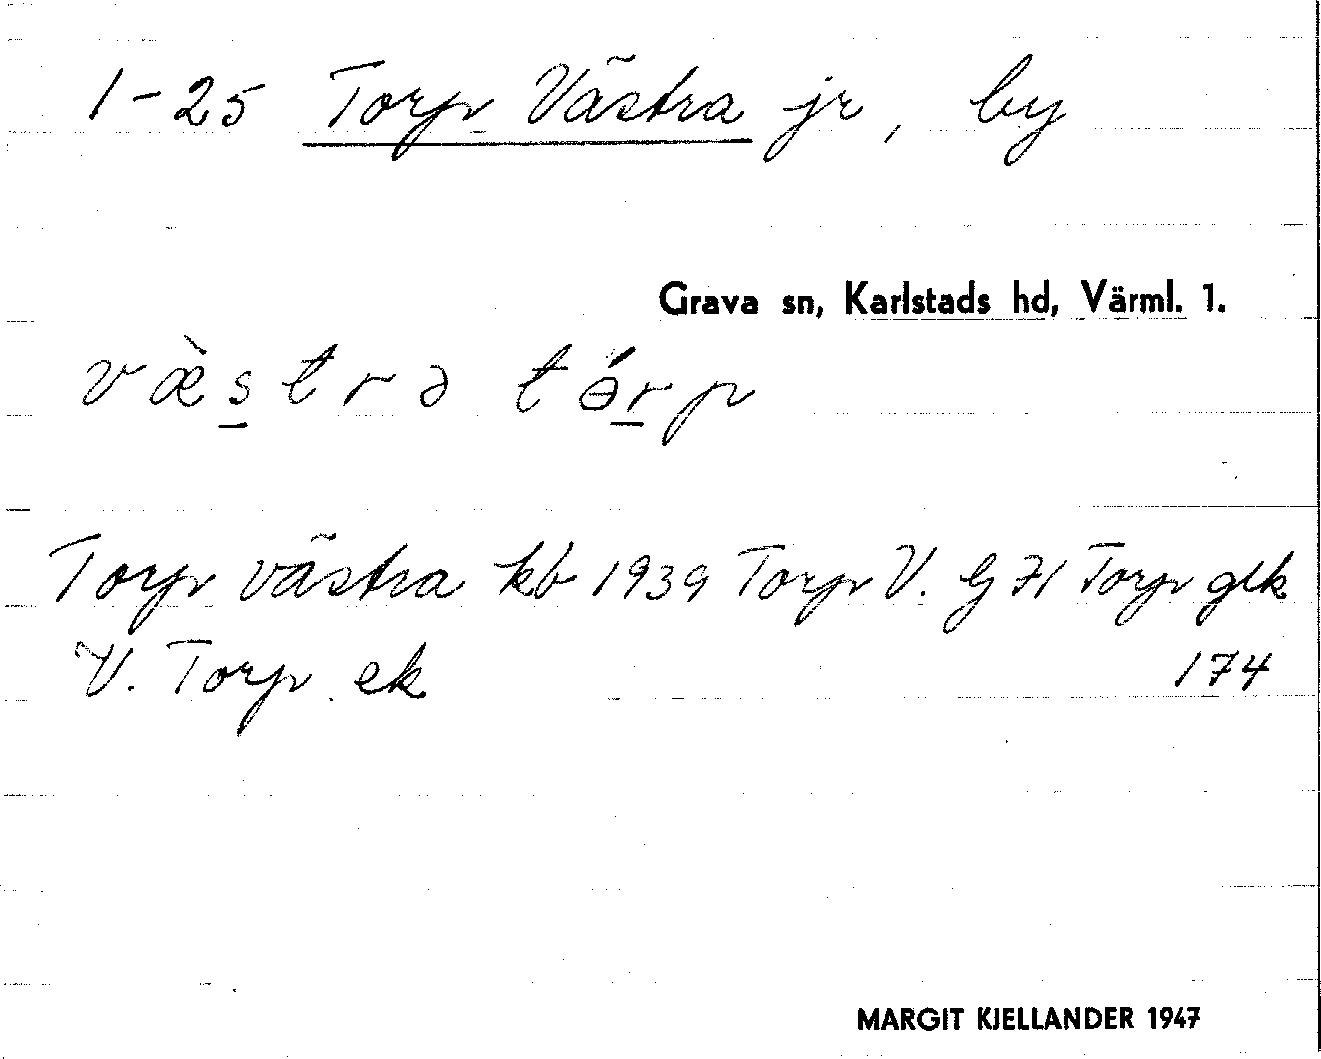 1-25 Torp Västra jr, by
Grava sn, Karlstads hd, Värml. 1.
væ̀s̱trə tɵ́ṟp
Torp västra kb 1939 Torp V. G 71 Torp glk
V. Torp ek 174
MARGIT KJELLANDER 1947